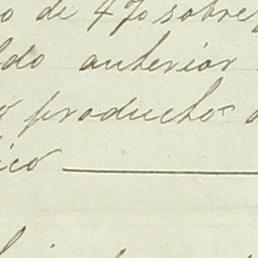 o de 4% sobre
ldo anterior
y producto
ico